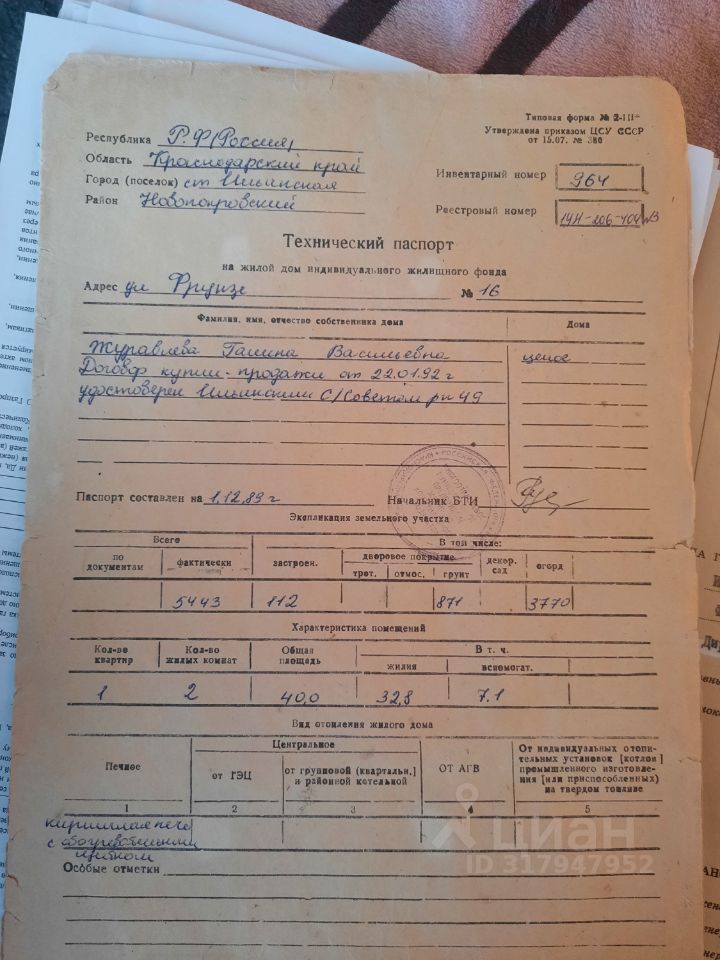 Типовая форма № 2-III
Утверждена приказом ЦСУ СССР
от 15.07. № 380
Республика Р.Ф (Россия)
Область Краснодарский край
Город (поселок) ст Ильинская
Район Новопокровский
Инвентарный номер 964
Реестровый номер
Технический паспорт
на жилой дом индивидуального жилищного фонда
Адрес ул Фрунзе № 16
Фамилия, имя, отчество собственника дома Дома
Журавлева Галина Васильевна целое
Договор купли-продажи от 22.01.92 г
удостоверен Ильинским С/Советом рн 49
Паспорт составлен на 1.12.89 г Начальник БТИ
Экспликация земельного участка
Всего В том числе:
по документам фактически застроен. дворовое покрытие декор. сад огород
трот. отмос. грунт
5443 112 871 3770
Характеристика помещений
Кол-во квартир Кол-во жилых комнат Общая площадь В т. ч.
жилия вспомогат.
1 2 40,0 32,8 7.1
Вид отопления жилого дома
Печное Центральное ОТ АГВ От индивидуальных отопи-
тельных установок [котлов]
промышленного изготовле-
ния [или приспособленных)
на твердом топливе
от ТЭЦ от групповой (квартальн.]
и районной котельной
1 2 3 4 5
кирпичная печь
с обогревательным
щитком
Особые отметки
циан
ID 317947952